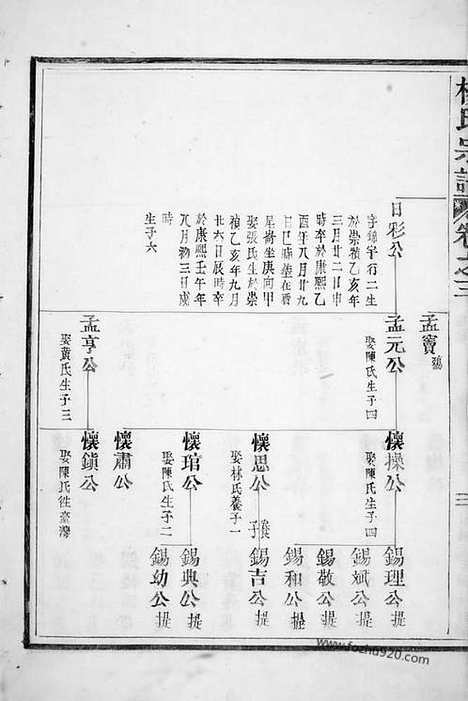 林氏宗譜
卷之三
三
日彩公
字錦宇行二生
於崇禎乙亥年
三月廿二日申
時卒於康熙乙
酉年八月廿九
日巳時葬在
坐庚向甲
娶張氏生於崇
禎乙亥年九月
廿六日辰時卒
於康熙壬午年
八月初三日戌
時
生子六
孟寶
孟元公
娶陳氏生子四
孟亨公
娶黃氏生子三
懷操公
娶陳氏生子四
懷思公
娶林氏養子一
養子
懷琯公
娶陳氏生子二
懷肅公
懷鎮公
娶陳氏往臺灣
錫理公提
錫斌公提
錫敬公提
錫和公提
錫吉公提
錫典公提
錫幼公提
www.fozhu920.com